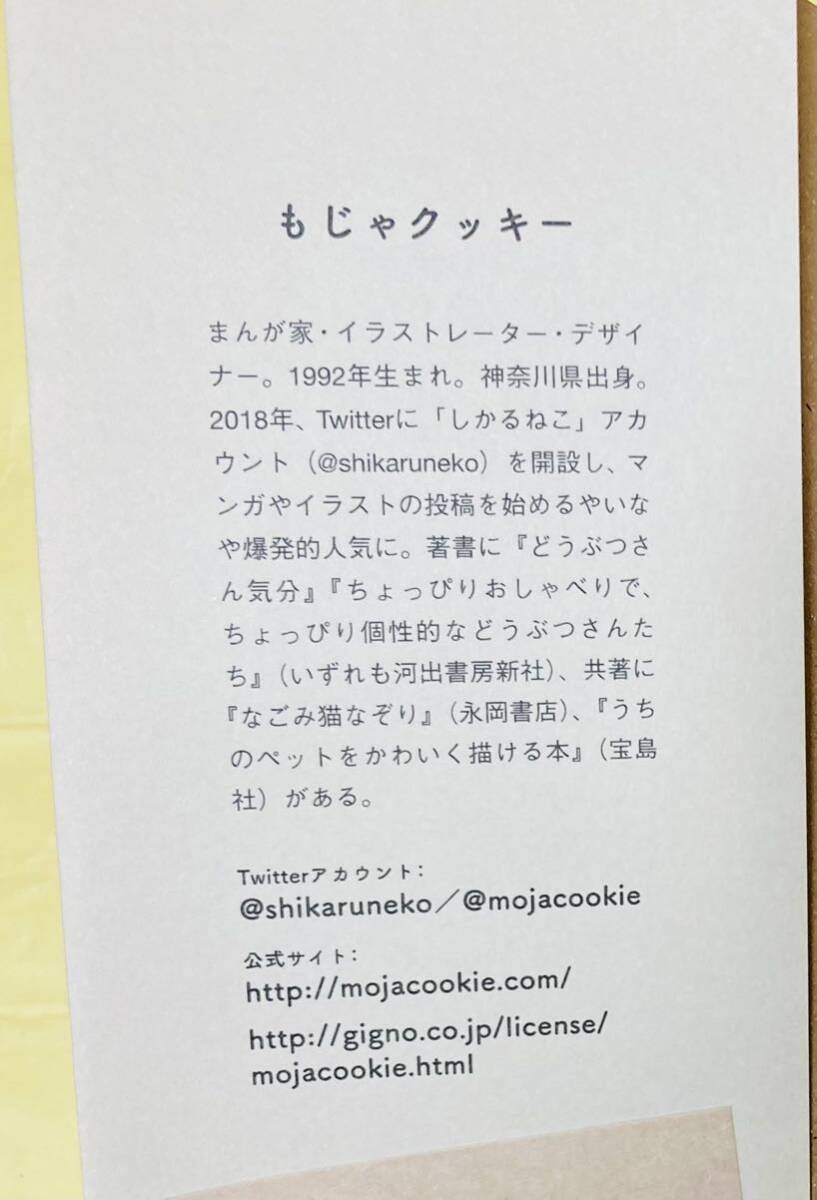 もじゃクッキー
まんが家・イラストレーター・デザイ
ナー。1992年生まれ。神奈川県出身。
2018年、Twitterに「しかるねこ」アカ
ウント（@shikaruneko）を開設し、マ
ンガやイラストの投稿を始めるやいな
や爆発的人気に。著書に『どうぶつさ
ん気分』『ちょっぴりおしゃべりで、
ちょっぴり個性的などうぶつさんた
ち』（いずれも河出書房新社）、共著に
『なごみ猫なぞり』（永岡書店）、『うち
のペットをかわいく描ける本』（宝島
社）がある。
Twitterアカウント：
@shikaruneko／@mojacookie
公式サイト：
http://mojacookie.com/
http://gigno.co.jp/license/
mojacookie.html